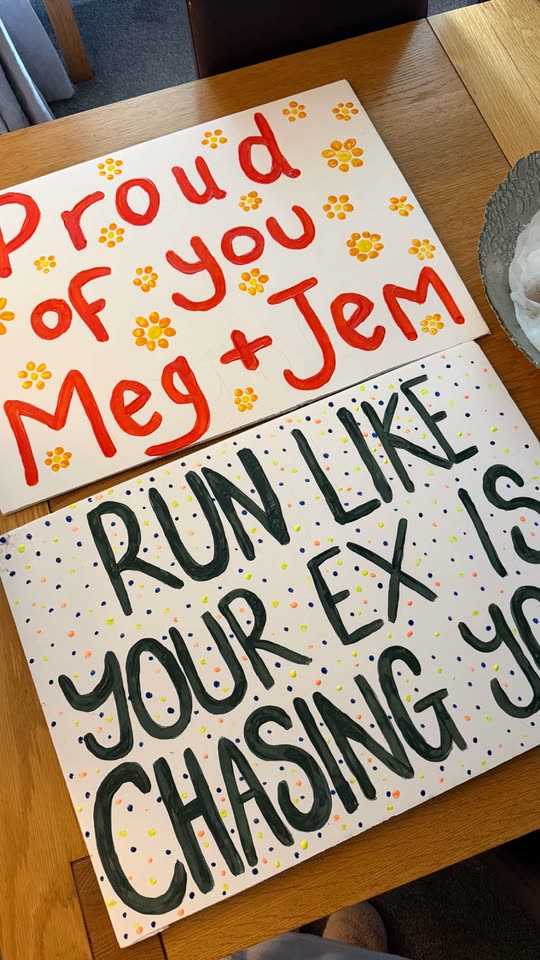 Proud
of you
Meg + Jem
RUN LIKE
YOUR EX IS
CHASING YO